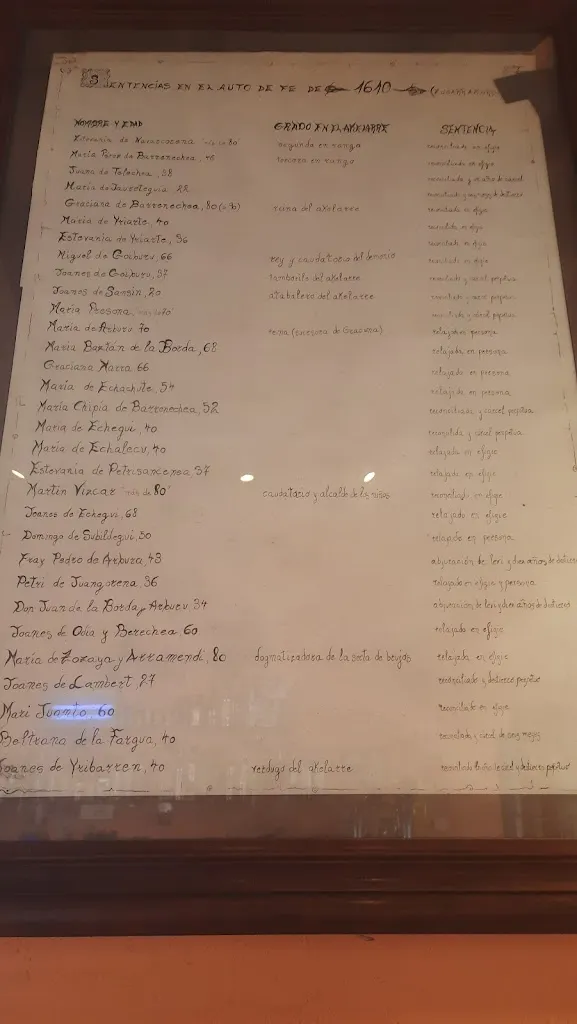 SENTENCIAS EN EL AUTO DE FE DE 1610
NOMBRE Y EDAD GRADO EN EL AKELARRE SENTENCIA
Estevanía de Navarcorena "más de 80" segunda en rango reconciliada en efigie
María Perez de Barrenechea, 46 tercera en rango reconciliada en efigie
Juana de Telechea, 38 reconciliada y un año de carcel
María de Jauretegui 22
Graciana de Barrenechea, 80 reina del akelarre reconciliada en efigie
María de Yriarte, 40 reconciliada en efigie
Estevanía de Yriarte, 36 reconciliada en efigie
Miguel de Goiburu, 66 rey y caudatario del demonio reconciliado en efigie
Joanes de Goiburu, 37 tamborile del akelarre reconciliado y carcel perpetua
Joanes de Sansin, 20 atabalero del akelarre reconciliado y carcel perpetua
María Presona, "más de 70" reconciliada y carcel perpetua
María de Arburu, 70 reina (sucesora de Graciana) relajada en persona
María Baztán de la Borda, 68 relajada en persona
Graciana Xarra 66 relajada en persona
María de Echachute, 54 relajada en persona
María Chipia de Barrenechea, 52 reconciliada y carcel perpetua
María de Echegui, 40 reconciliada y carcel perpetua
María de Echalecu, 40 relajada en efigie
Estevanía de Petrisancena 37 relajada en efigie
Martín Vizcar "más de 80" caudatario y alcalde de los niños reconciliado en efigie
Joanes de Echegui, 68 relajado en efigie
Domingo de Subildegui, 50 relajado en persona
Fray Pedro de Arburu, 43 abjuración de levi y diez años de destierro
Petri de Juangorena, 36 relajado en efigie y persona
Don Juan de la Borda y Arburu 34 abjuración de levi y diez años de destierro
Joanes de Odia y Berechea 60 relajado en efigie
María de Zozaya y Arramendi, 80 dogmatizadora de la secta de brujos relajada en efigie
Joanes de Lambert, 27 reconciliado y destierro perpetuo
Mari Juanto 60 reconciliada en efigie
Beltrana de la Fargua, 40 reconciliada y carcel de seis meses
Joanes de Yribarren, 40 verdugo del akelarre